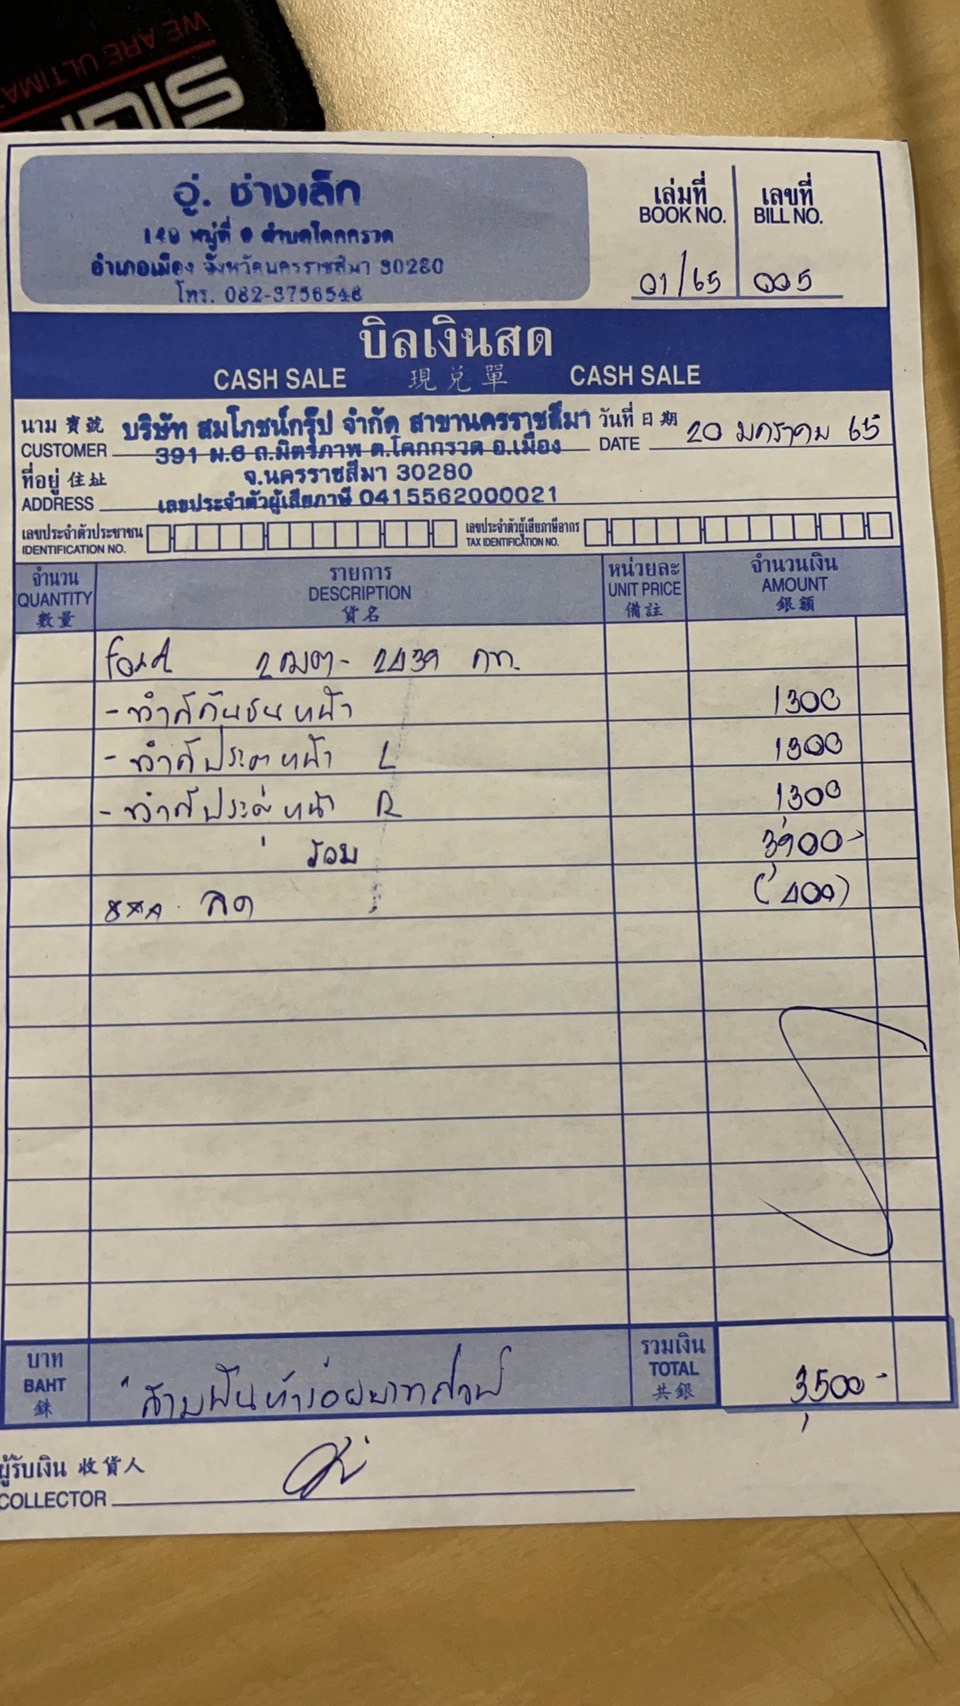 WE ARE ULTIMA
SIGN
อู่. ช่างเล็ก
149 หมู่ที่ 9 ตำบลโคกกรวด
อำเภอเมือง จังหวัดนครราชสีมา 30280
โทร. 082-3756548
เล่มที่ เลขที่
BOOK NO. BILL NO.
01/65 005
บิลเงินสด
CASH SALE 現兌單 CASH SALE
นาม 寶號 บริษัท สมโภชน์กรุ๊ป จำกัด สาขานครราชสีมา วันที่ 日期
CUSTOMER 391 ม.6 ถ.มิตรภาพ ต.โคกกรวด อ.เมือง DATE 20 มกราคม 65
ที่อยู่ 住址 จ.นครราชสีมา 30280
ADDRESS เลขประจำตัวผู้เสียภาษี 0415562000021
เลขประจำตัวประชาชน เลขประจำตัวผู้เสียภาษีอากร
IDENTIFICATION NO. TAX IDENTIFICATION NO.
จำนวน รายการ หน่วยละ จำนวนเงิน
QUANTITY DESCRIPTION UNIT PRICE AMOUNT
數量 貨名 備註 銀額
Ford 2439 กท.
- ทำสีกันชนหน้า 1300
- ทำสีประตูหน้า L 1300
- ทำสีประตูหน้า R 1300
รวม 3,900-
ลด (400)
บาท รวมเงิน
BAHT สามพันห้าร้อยบาทถ้วน TOTAL 3,500-
銖 共銀
ผู้รับเงิน 收貨人
COLLECTOR